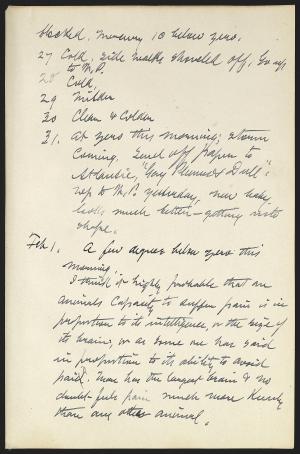 blasted. Mercury 10 below zero.
27 Cold, side walks shoveled off. Go up
to M.P.
28 Cold,
29 Milder
30 Clear & Colder
31. At zero this morning; storm
Coming. Send off paper to
Atlantic, "Gay Plumes & Dull":
up to M.P. yesterday, new baby
looks much better - getting into
shape.
Feb 1. A few degrees below zero this
morning.
I think it highly probable that an
animals Capacity to suffer pain is in
proportion to its intelligence, or the size of
its brain, or as some one has said
in proportion to its ability to avoid
pain. Man has the largest brain & no
doubt feels pain much more Keenly
than any other animal.